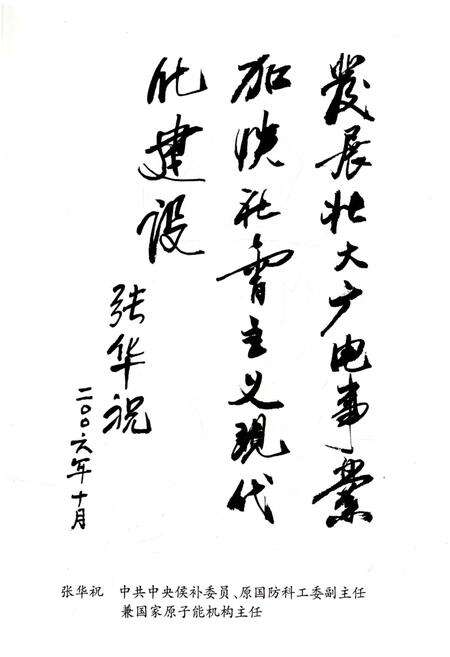 發展壮大广电事業
加快社會主义現代
化建设
张华祝
二〇〇六年十月
张华祝 中共中央侯补委员、原国防科工委副主任
兼国家原子能机构主任